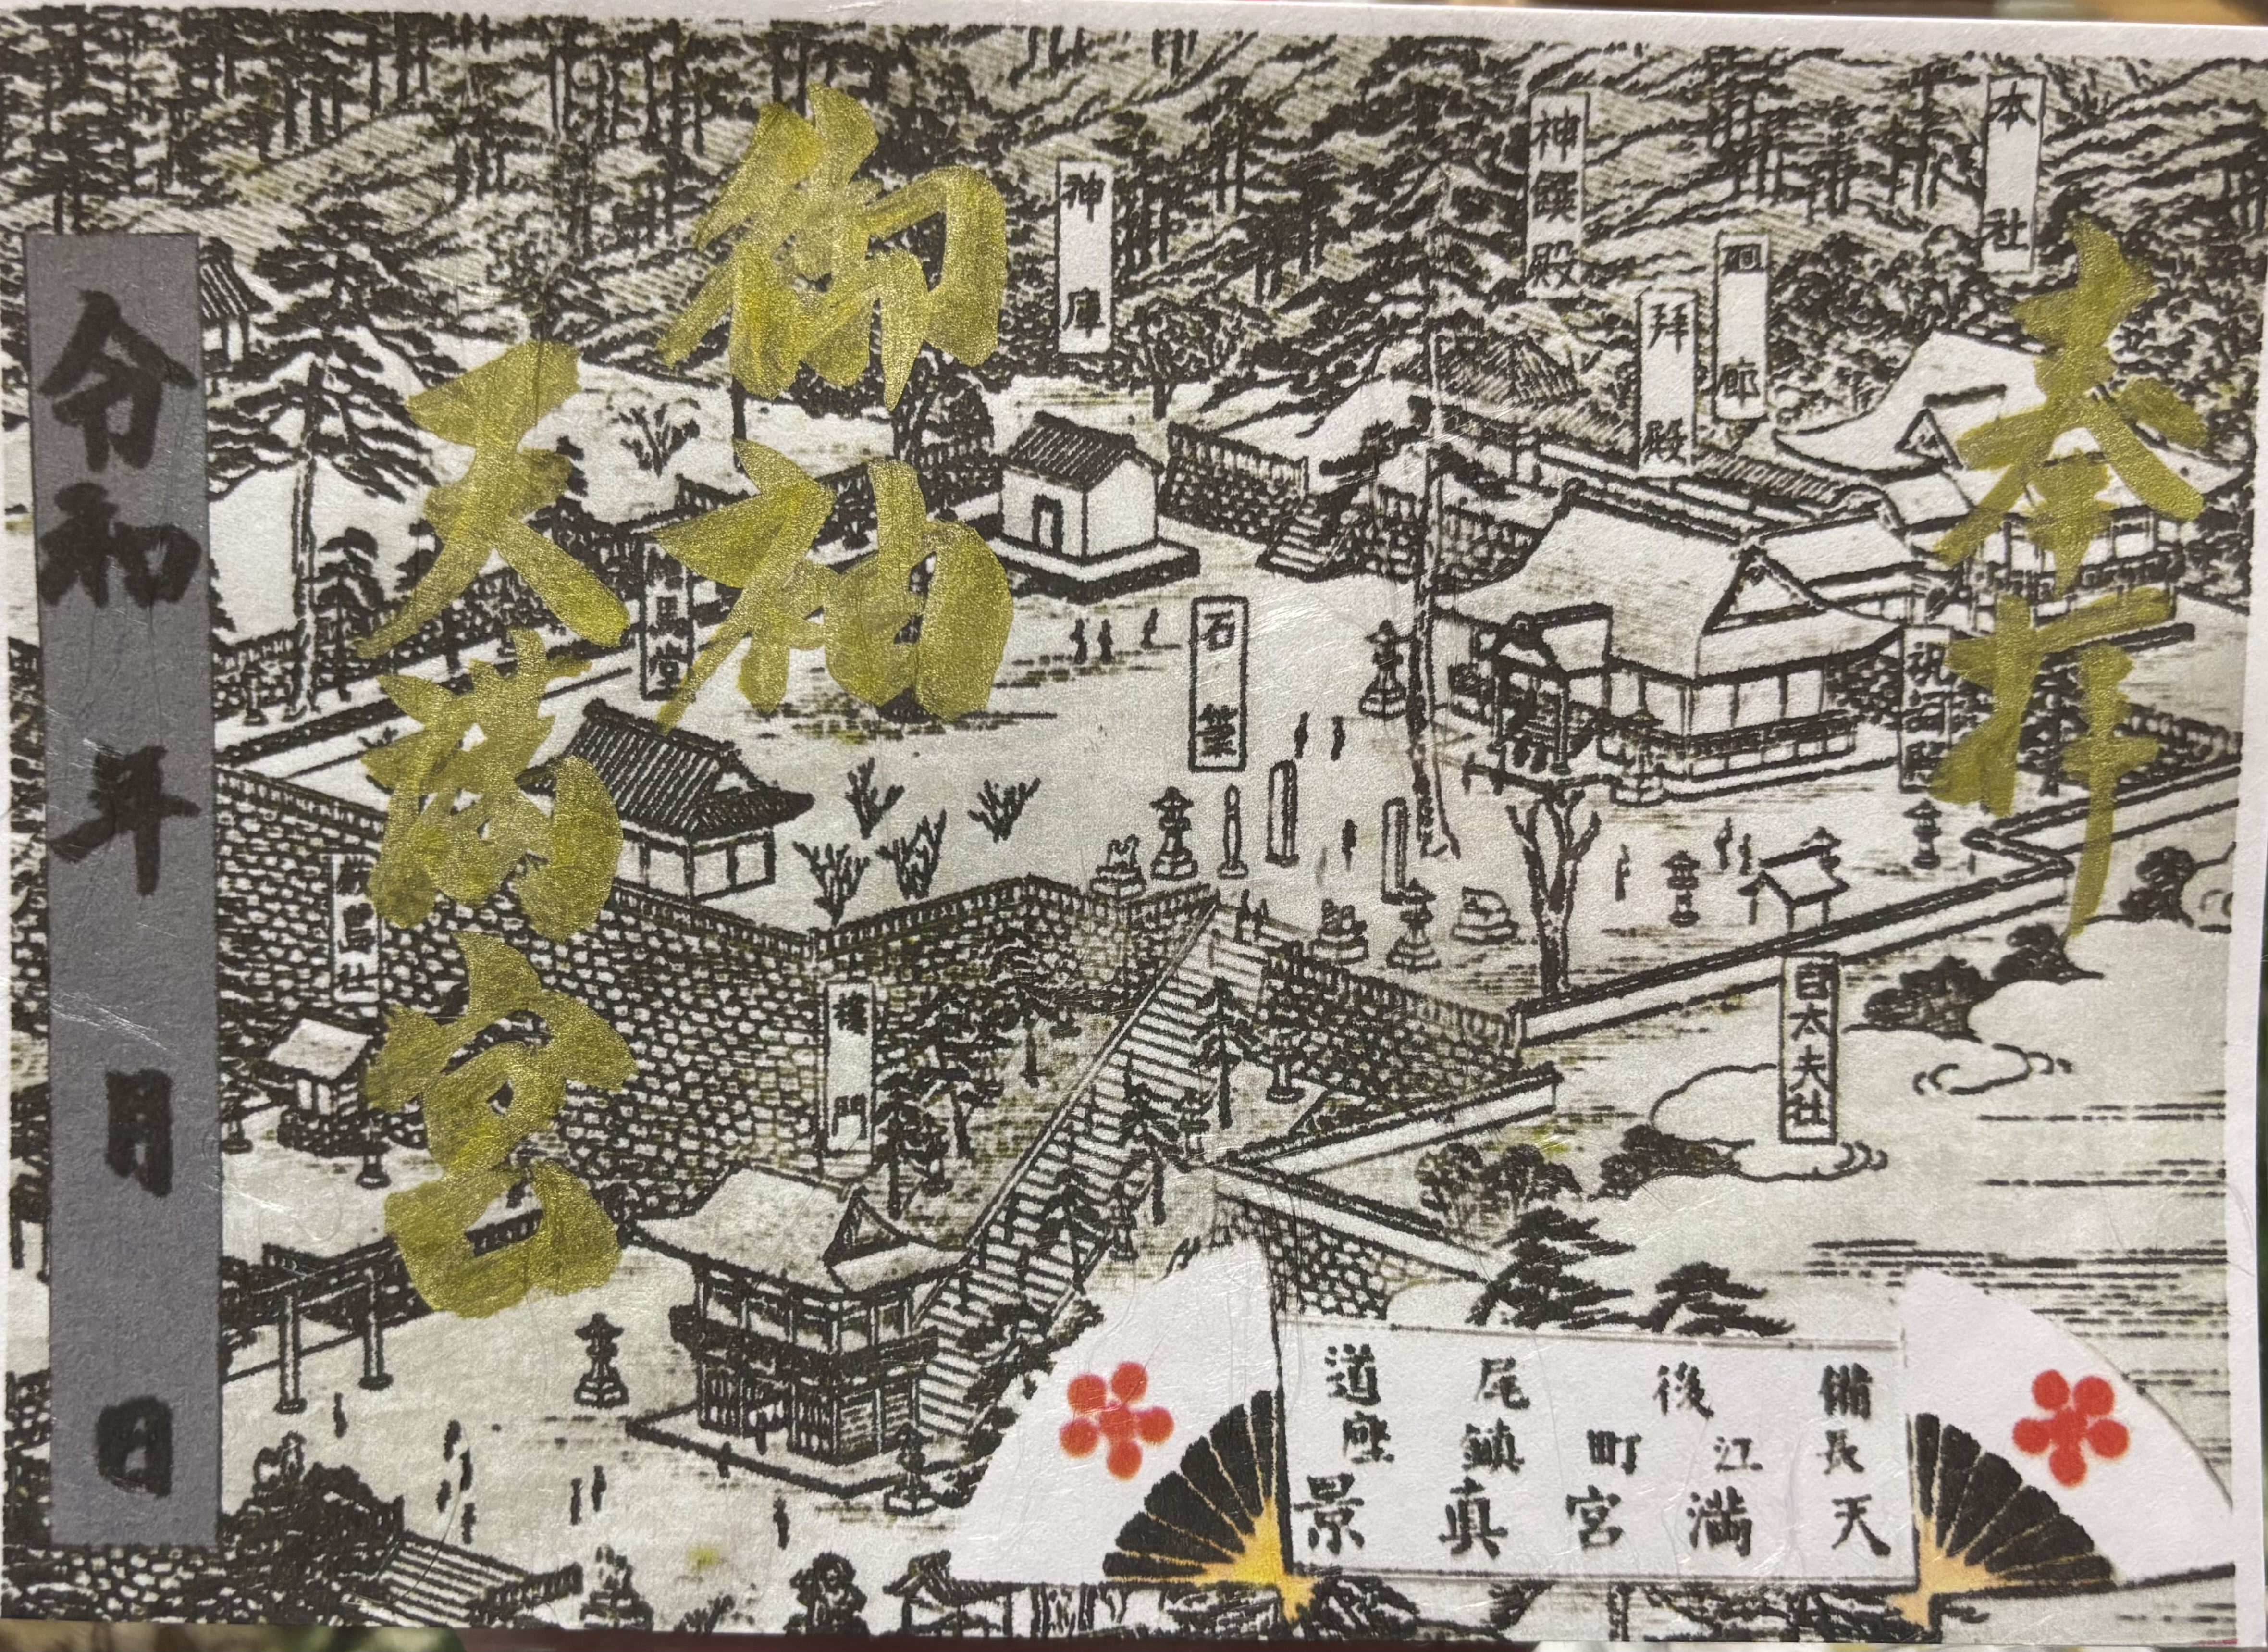 奉拝
御袖
天満宮
令和 年 月 日
本社
神饌殿
廻廊
拝殿
神庫
石筆
白太夫社
楼門
備後尾道
長江町鎮座
天満宮真景